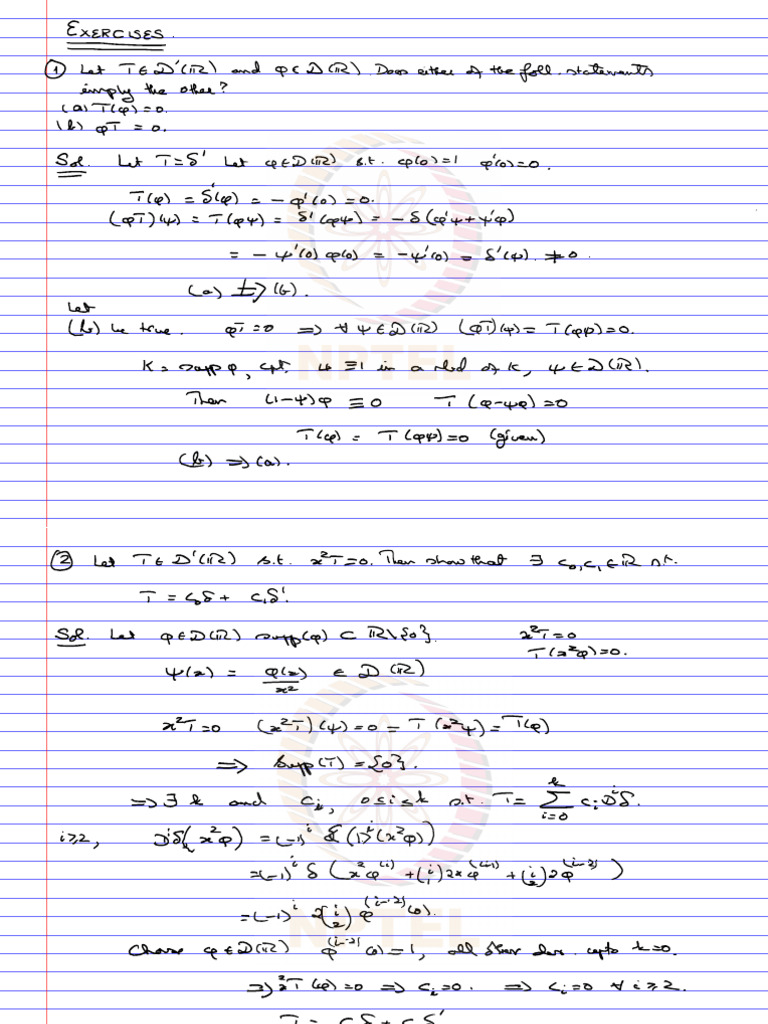 EXERCISES.
① Let T∈D'(ℝ) and φ∈D(ℝ). Does either of the foll. statements
imply the other?
(a) T(φ)=0.
(b) φT = 0.
Sol. Let T=δ' Let φ∈D(ℝ) s.t. φ(0)=1 φ'(0)=0.
T(φ) = δ'(φ) = -φ'(0) = 0.
(φT)(ψ) = T(φψ) = δ'(φψ) = -δ(φ'ψ+ψ'φ)
= -ψ'(0)φ(0) = -ψ'(0) = δ'(ψ). ≠0.
(a) ⇏ (b).
Let
(b) be true. φT=0 ⇒ ∀ ψ∈D(ℝ) (φT)(ψ) = T(φψ)=0.
K = supp φ, cpt. ψ ≡1 in a nbd of K, ψ∈D(ℝ).
Then (1-ψ)φ ≡ 0 T(φ-ψφ)=0
T(φ) = T(φψ)=0 (given)
(b) ⇒ (a).
② Let T∈D'(ℝ) s.t. x²T=0. Then show that ∃ c₀,c₁∈ℝ s.t.
T = c₀δ + c₁δ'.
Sol. Let φ∈D(ℝ) supp(φ) ⊂ ℝ\{0}. x²T=0
T(x²φ)=0.
ψ(x) = φ(x)/x² ∈ D(ℝ)
x²T=0 (x²T)(ψ)=0 = T(x²ψ) = T(φ)
⇒ supp(T) = {0}.
⇒ ∃ k and cᵢ, 0≤i≤k s.t. T = Σ_{i=0}^{k} cᵢDⁱδ.
i≥2, Dⁱδ(x²φ) = (-1)ⁱ δ(Dⁱ(x²φ))
= (-1)ⁱ δ(x²φ⁽ⁱ⁾ + (i 1)2xφ⁽ⁱ⁻¹⁾ + (i 2)2φ⁽ⁱ⁻²⁾)
= (-1)ⁱ 2(i 2) φ⁽ⁱ⁻²⁾(0).
Choose φ∈D(ℝ) φ⁽ⁱ⁻²⁾(0)=1, all other der. upto k=0.
⇒ x²T(φ)=0 ⇒ cᵢ=0. ⇒ cᵢ=0 ∀ i≥2.
T = c₀δ + c₁δ'
NPTEL
NPTEL